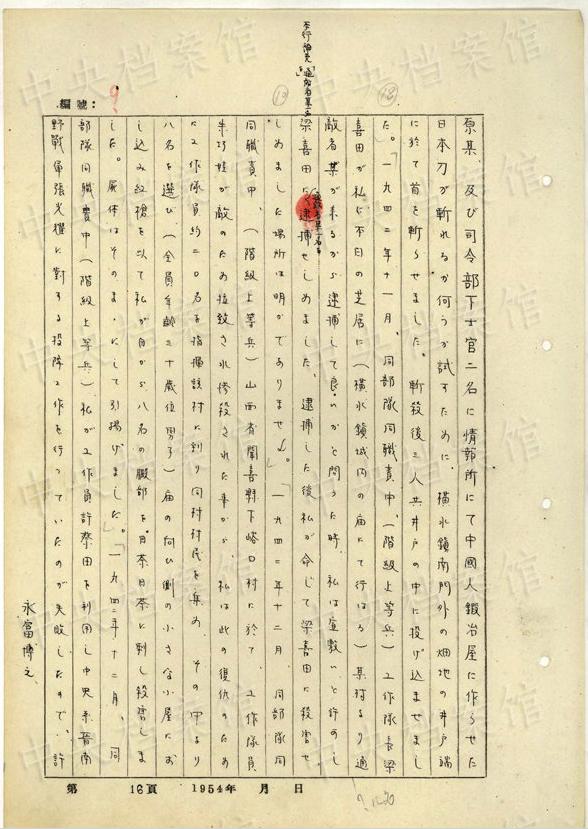 不行前先
編號：
9
⑬
⑱
原某、及び司令部下士官二名に情報所にて中國人鍛冶屋に作らせた
日本刀が斬れるか何うか試すために、横水鎮南門外の畑地の井戸端
に於て首を斬らせました。斬殺後三人共井戸の中に投げ込ませまし
た。一九四二年十一月、同部隊同職責中、(階級上等兵)工作隊長梁
喜田が私に不日の芝居に(横水鎮城内の庙にて行はる)某村より通
敵者某が来るから逮捕して良いかと問うた時、私は宜敷いと許可し
梁喜田に逮捕せしめました、逮捕した後私が命じて梁喜田に殺害せ
しめました場所は明かでありません。」「一九四二年十二月、同部隊同
同職責中、(階級上等兵)山西省聞喜縣下峪口村に於て、工作隊員
朱巧娃が敵のため惨殺された事から、私は此の復仇のため
に工作隊員約二〇名を指揮該村に到り同村村民を集め、その中より
八名を選び(全員年齢三十歳位男子)庙の向ひ側の小さな小屋にお
し込み紅槍を以て私が自から八名の腹部を目茶目茶に刺し殺害しま
した。屍体はそのまゝにして引揚げました。」「一九四二年十二月、同
部隊同職責中(階級上等兵)私が工作員許榮田を利用し中央系晋南
野戰軍張光耀に對する投降工作を行っていたのが失敗したので、許
永富博之
第 16頁 1954年 月 日
中央档案馆